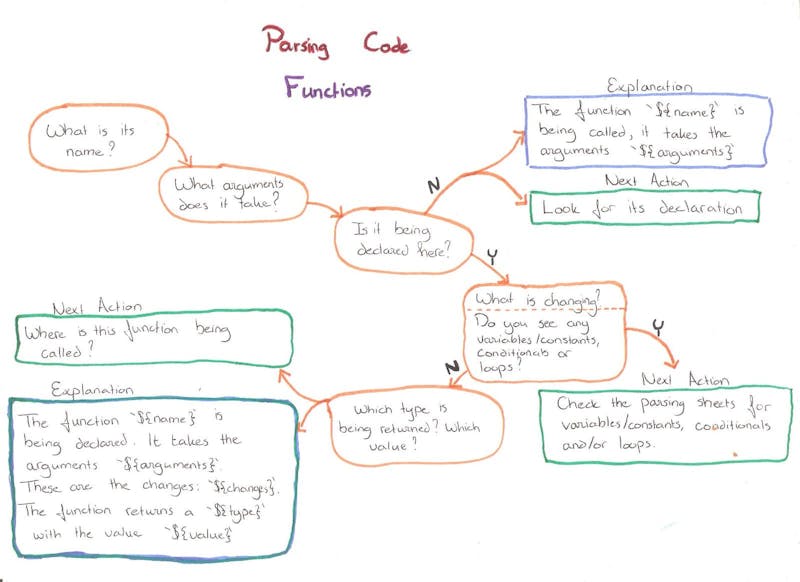 Parsing Code
Functions
What is its
name?
What arguments
does it take?
Is it being
declared here?
N
Explanation
The function `${name}` is
being called, it takes the
arguments `${arguments}`
Next Action
Look for its declaration
Y
What is changing?
Do you see any
variables/constants,
conditionals or
loops?
Y
Next Action
Check the parsing sheets for
variables/constants, conditionals
and/or loops.
N
Which type is
being returned? Which
value?
Next Action
Where is this function being
called?
Explanation
The function `${name}` is
being declared. It takes the
arguments `${arguments}`.
These are the changes: `${changes}`.
The function returns a `${type}`
with the value `${value}`